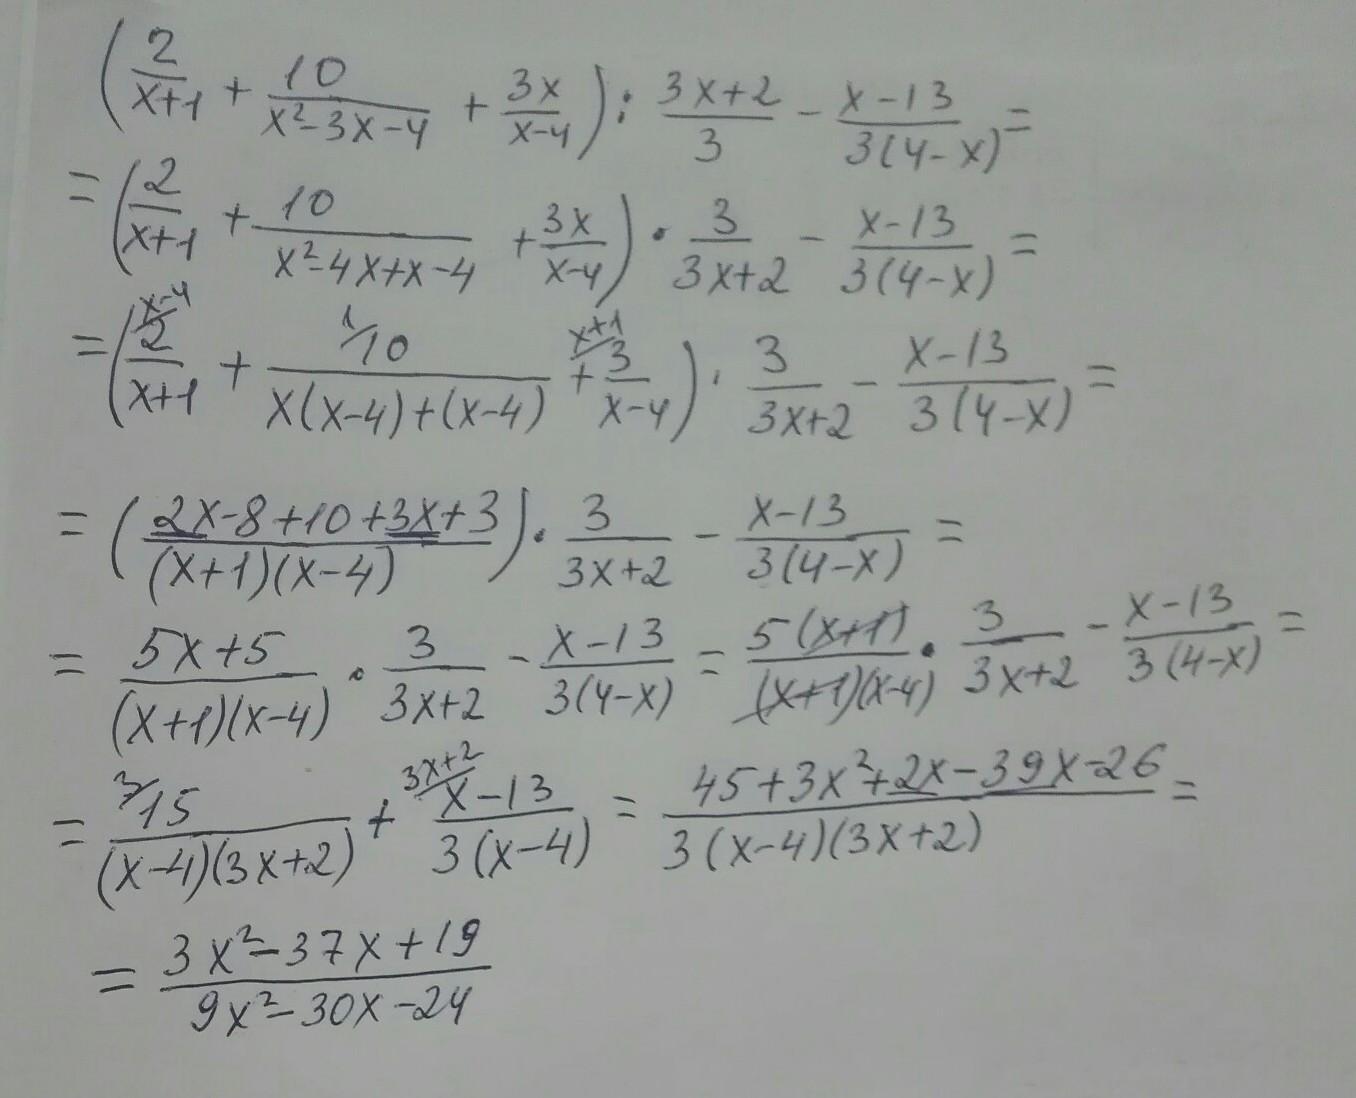 (2/(x+1) + 10/(x²-3x-4) + 3x/(x-4)) : (3x+2)/3 - (x-13)/(3(4-x)) =
= (2/(x+1) + 10/(x²-4x+x-4) + 3x/(x-4)) · 3/(3x+2) - (x-13)/(3(4-x)) =
= (ˣ⁻⁴/2/(x+1) + ¹/10/(x(x-4)+(x-4)) + ˣ⁺¹/3/(x-4)) · 3/(3x+2) - (x-13)/(3(4-x)) =
= ((2x-8+10+3x+3)/((x+1)(x-4))) · 3/(3x+2) - (x-13)/(3(4-x)) =
= (5x+5)/((x+1)(x-4)) · 3/(3x+2) - (x-13)/(3(4-x)) = 5(x+1)/((x+1)(x-4)) · 3/(3x+2) - (x-13)/(3(4-x)) =
= ³/15/((x-4)(3x+2)) + ³ˣ⁺²/(x-13)/(3(x-4)) = (45+3x²+2x-39x-26)/(3(x-4)(3x+2)) =
= (3x²-37x+19)/(9x²-30x-24)